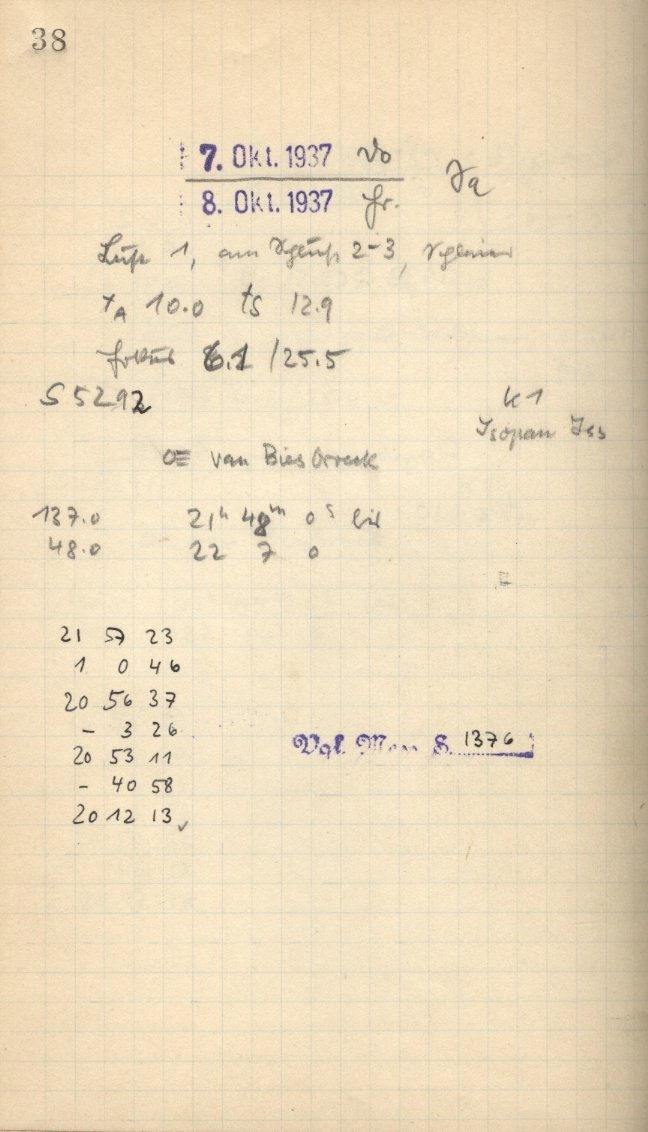 38
7. Okt. 1937 Do
8. Okt. 1937 Fr.
Luft 1, am Schluß 2-3, Schleier
tA 10.0 ts 12.9
Fokus 6.1 /25.5
S 5292
k 1
Isopan Iss
van Biesbroeck
137.0 21h 48m 0s bis
48.0 22 7 0
21 57 23
1 0 46
20 56 37
- 3 26
20 53 11
- 40 58
20 12 13 ✓
Vgl. S. 1376